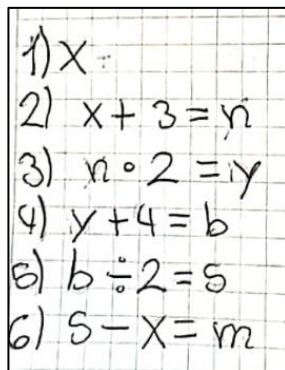 1) X
2) x + 3 = n
3) n · 2 = y
4) y + 4 = b
5) b ÷ 2 = s
6) s - x = m